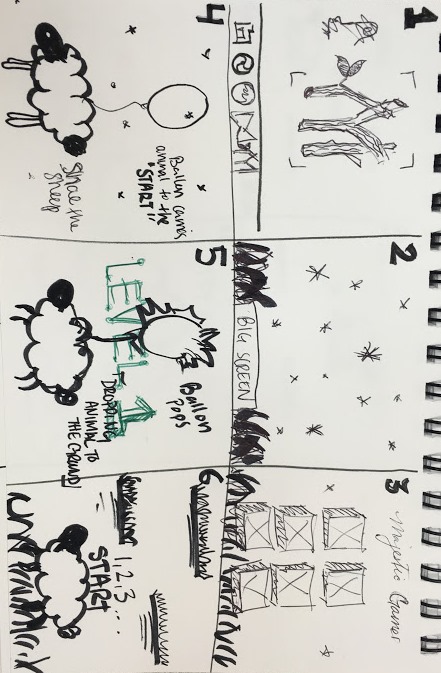 1
2
BIG SCREEN
3
Majestic Gamer
4
Ballon carries
animal to the
"START"
the
Sheep
5
Ballon
Pops
LEVEL 1
DROPPING
ANIMAL TO
THE GROUND!
6
1, 2, 3 ...
START